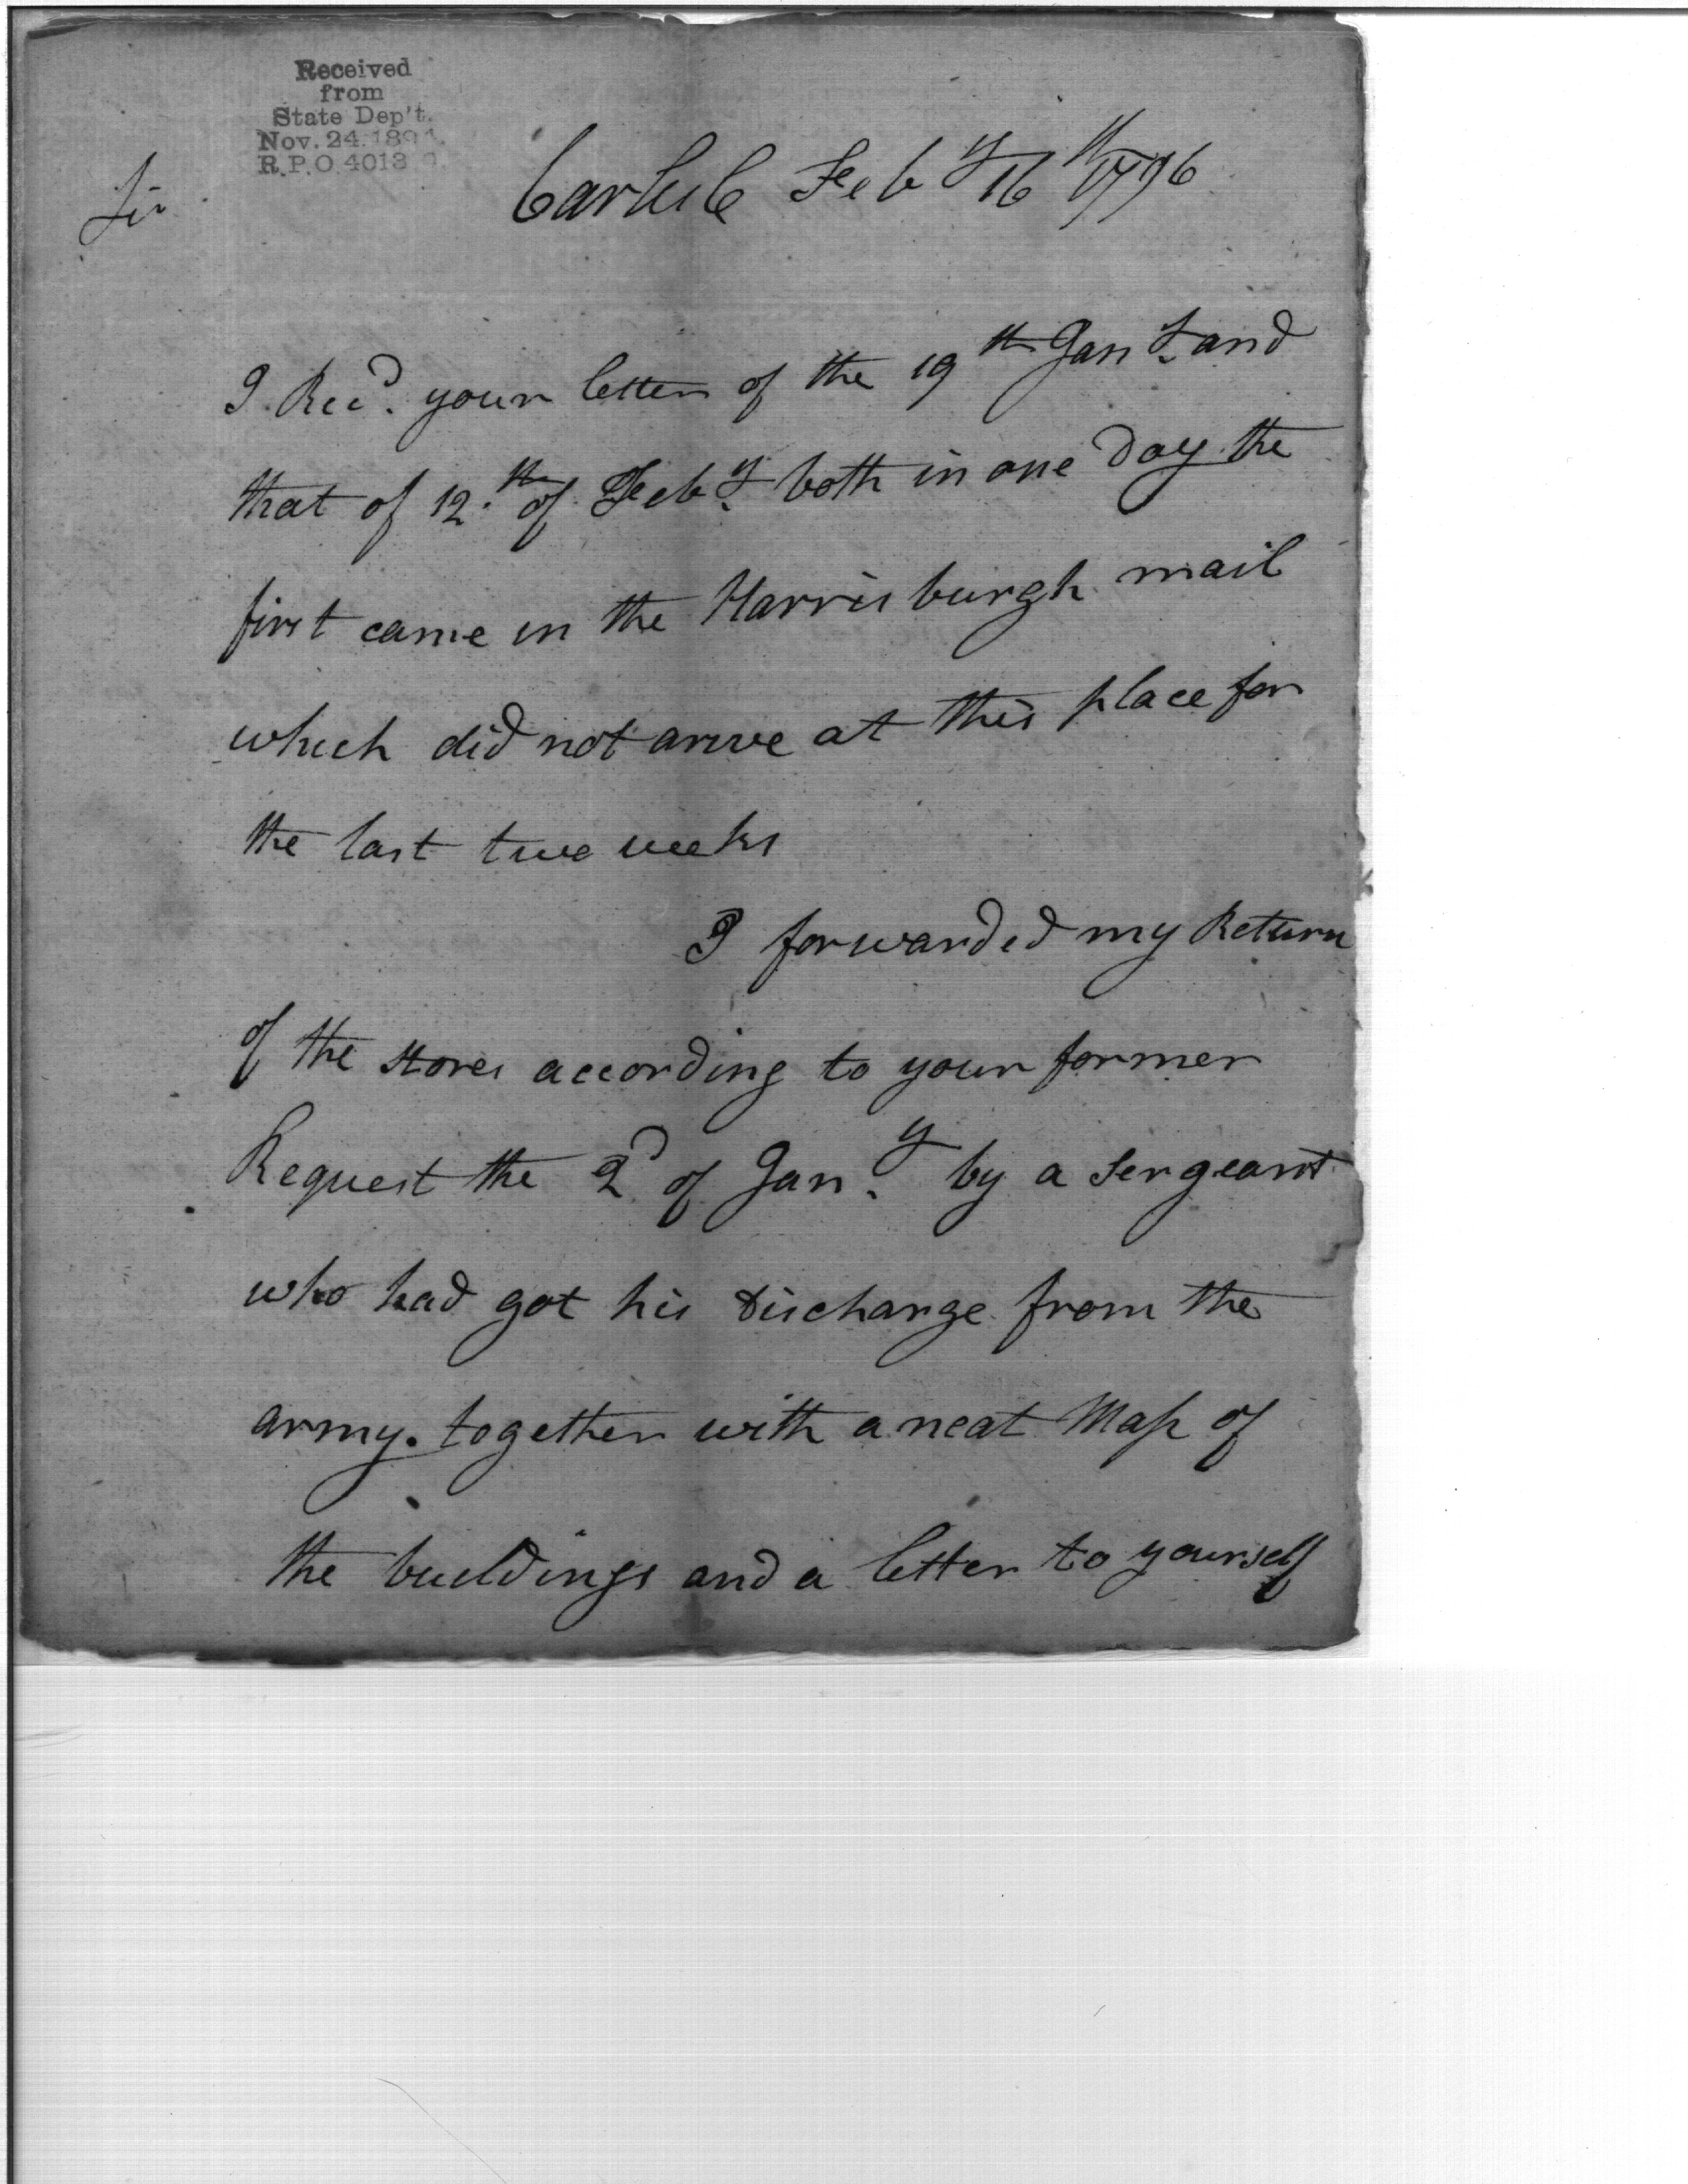 Received
from
State Dep't.
Nov. 24 189
R.P.O. 4013
Sir
Carlisle Feby 16th 1796
I Recd. your letter of the 19th Jany and
that of 12.th of Feby both in one day the
first came in the Harrisburgh mail
which did not arive at this place for
the last two weeks
I forwarded my Return
of the stores according to your former
Request the 2d of Jany by a sergeant
who had got his Discharge from the
army. together with a neat Map of
the buildings and a letter to yourself